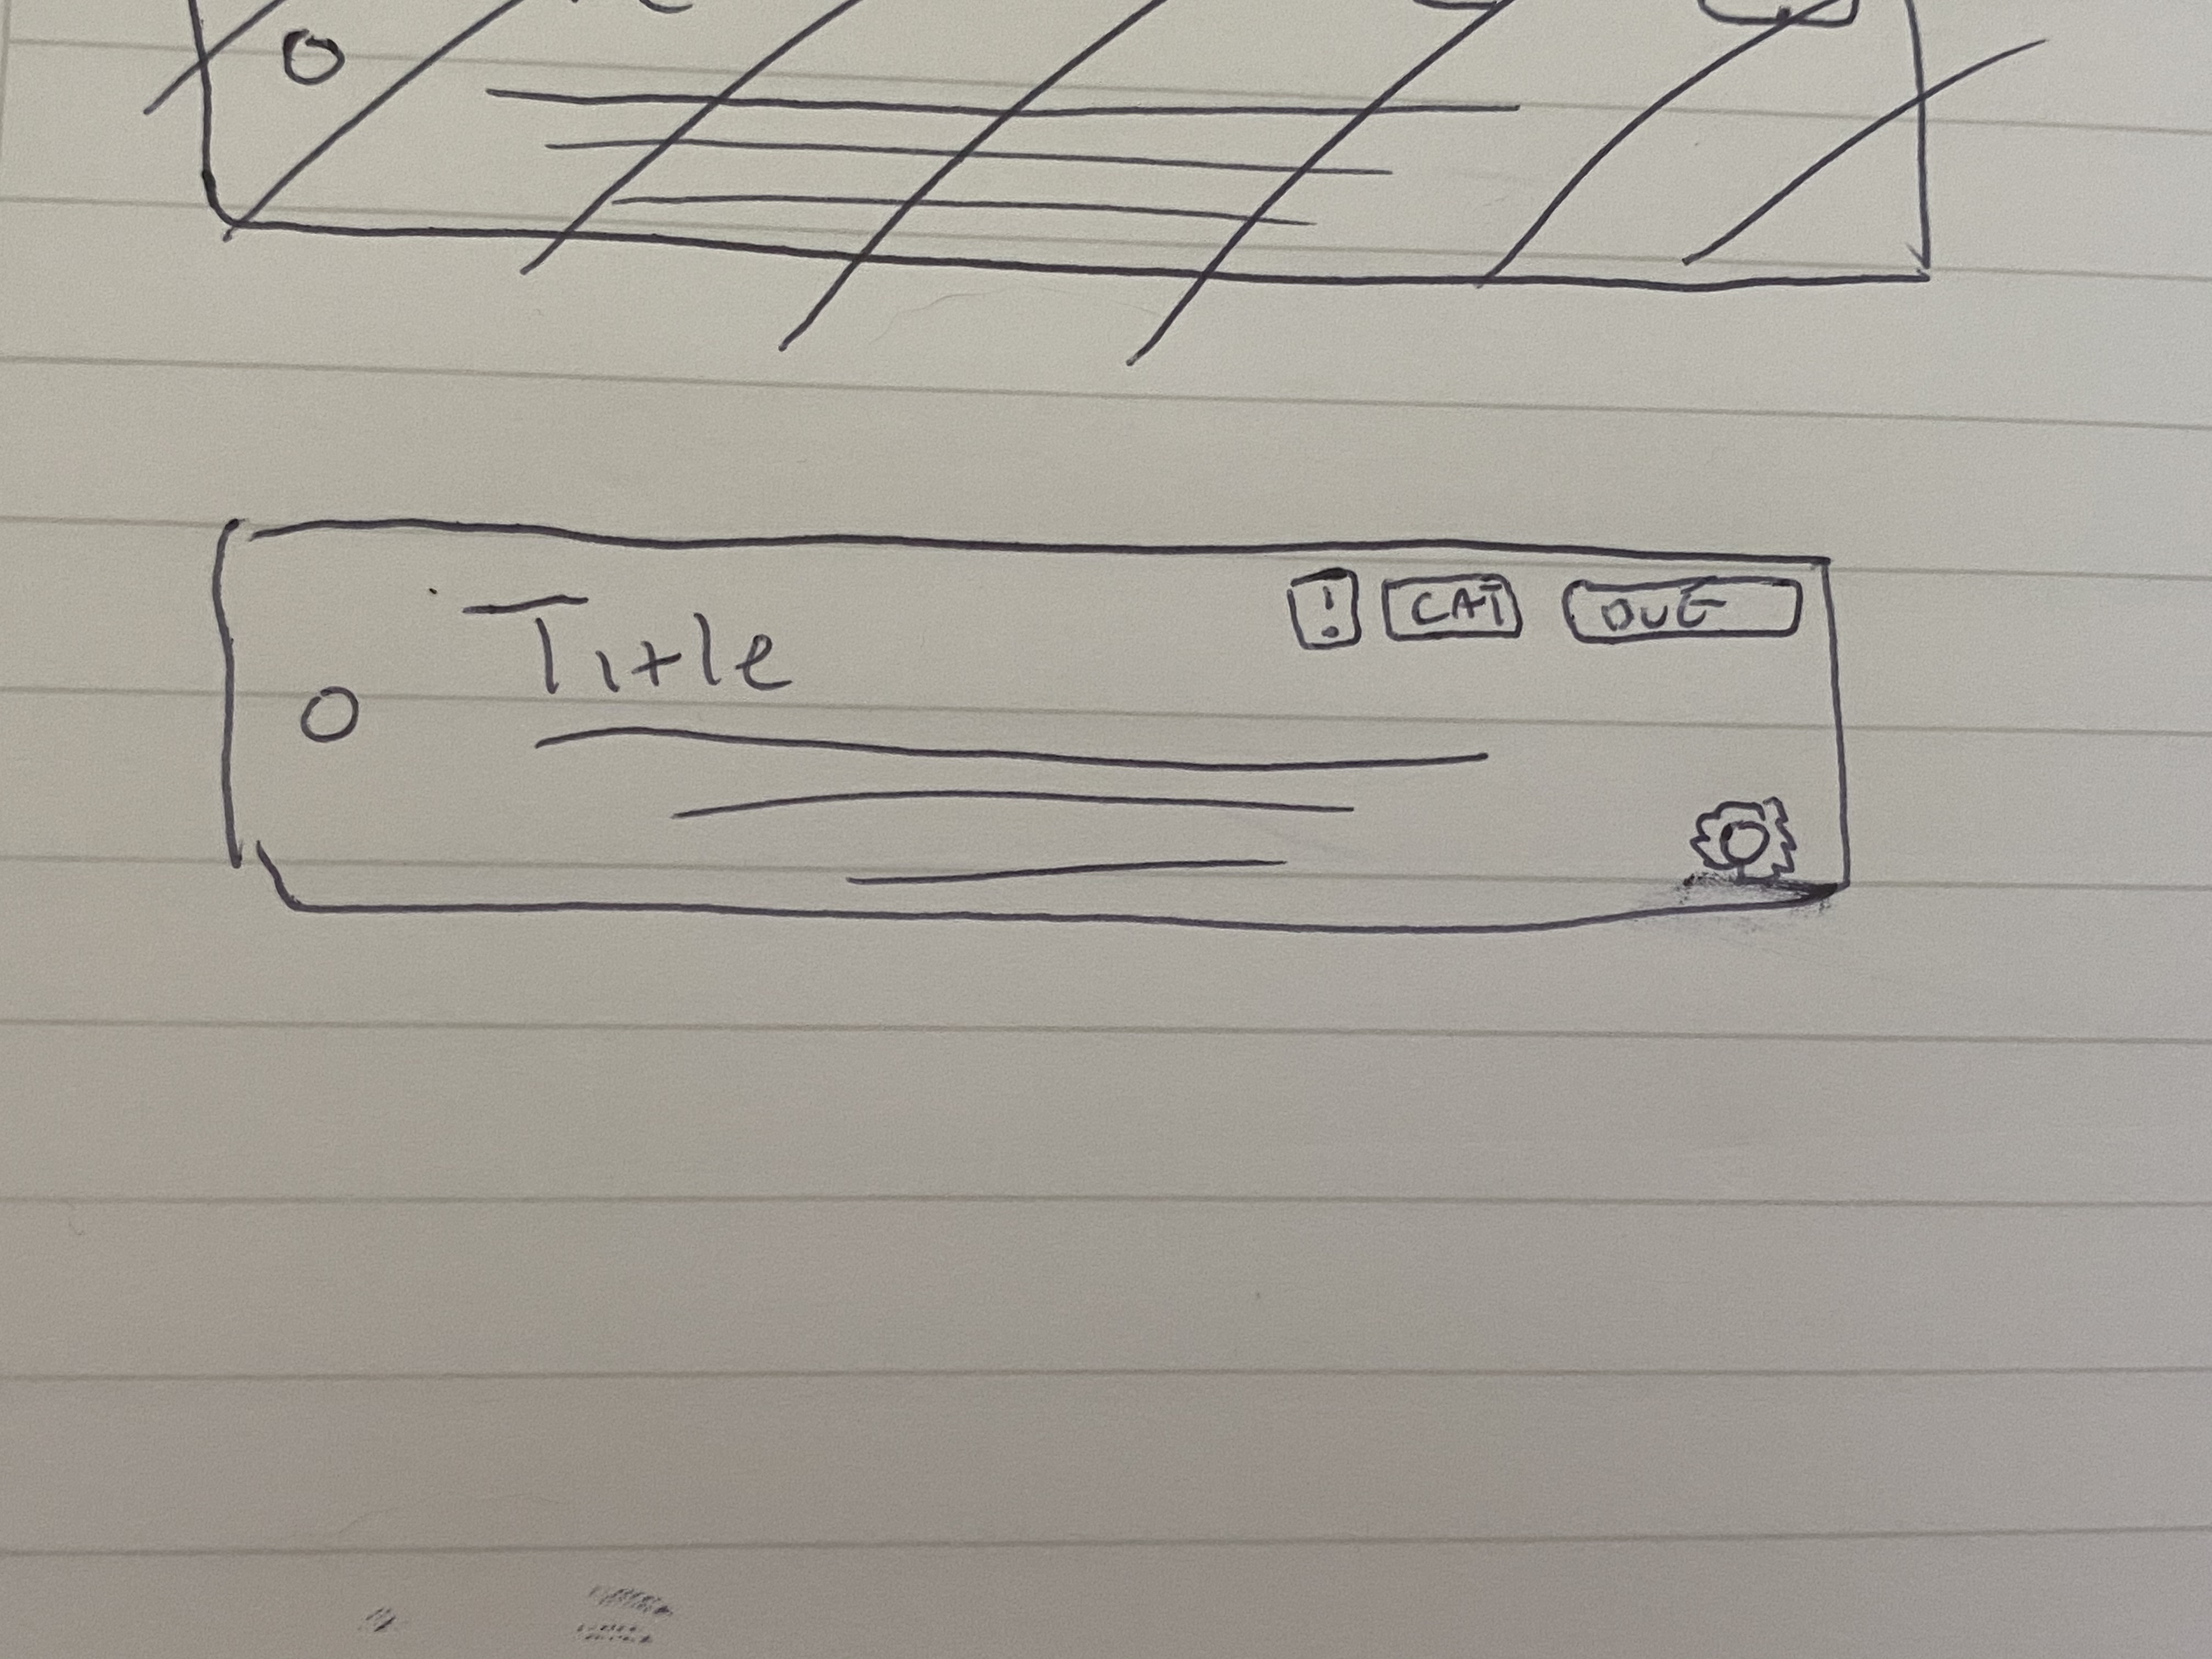 Title
! CAT DUE